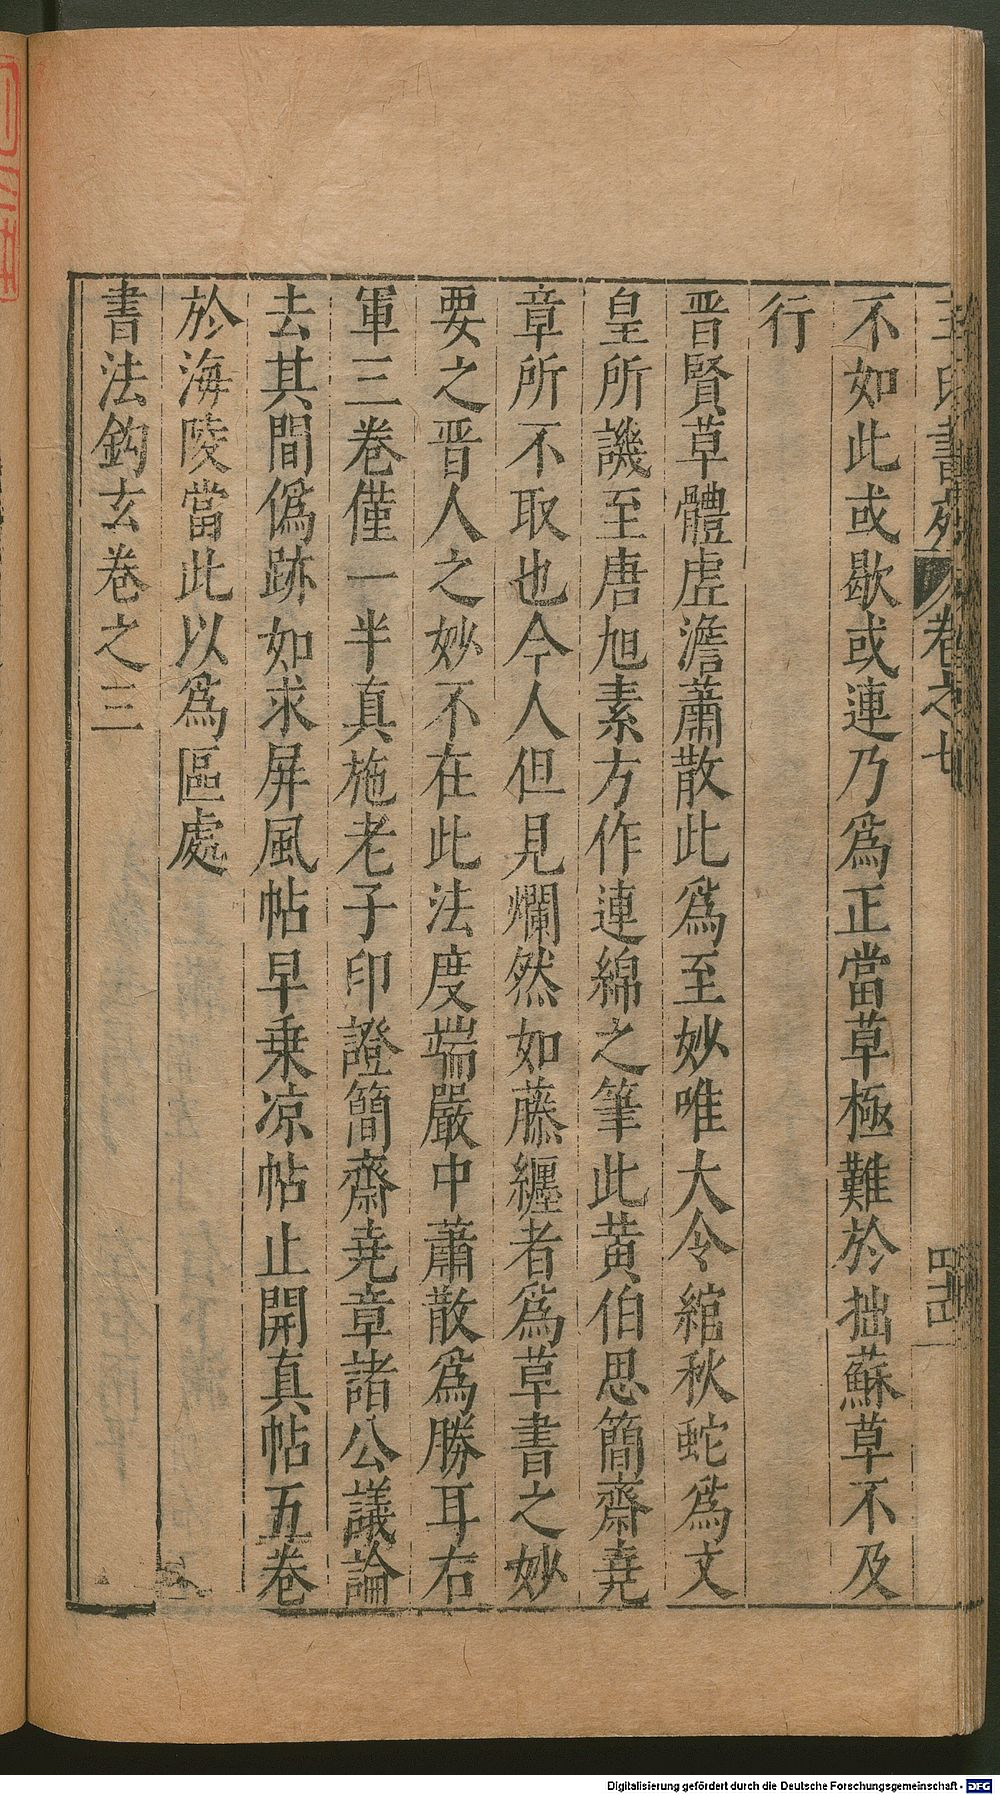 書苑 卷之七
不如此或歇或連乃爲正當草極難於拙蘇草不及
行
晋賢草體虛澹蕭散此爲至妙唯大令綰秋蛇爲文
皇所譏至唐旭素方作連綿之筆此黄伯思簡齋堯
章所不取也今人但見爛然如藤纏者爲草書之妙
要之晋人之妙不在此法度端嚴中蕭散爲勝耳右
軍三卷僅一半真施老子印證簡齋堯章諸公議論
去其間僞跡如求屏風帖早乗凉帖止開真帖五卷
於海陵當此以爲區處
書法鈎玄卷之三
Digitalisierung gefördert durch die Deutsche Forschungsgemeinschaft - DFG